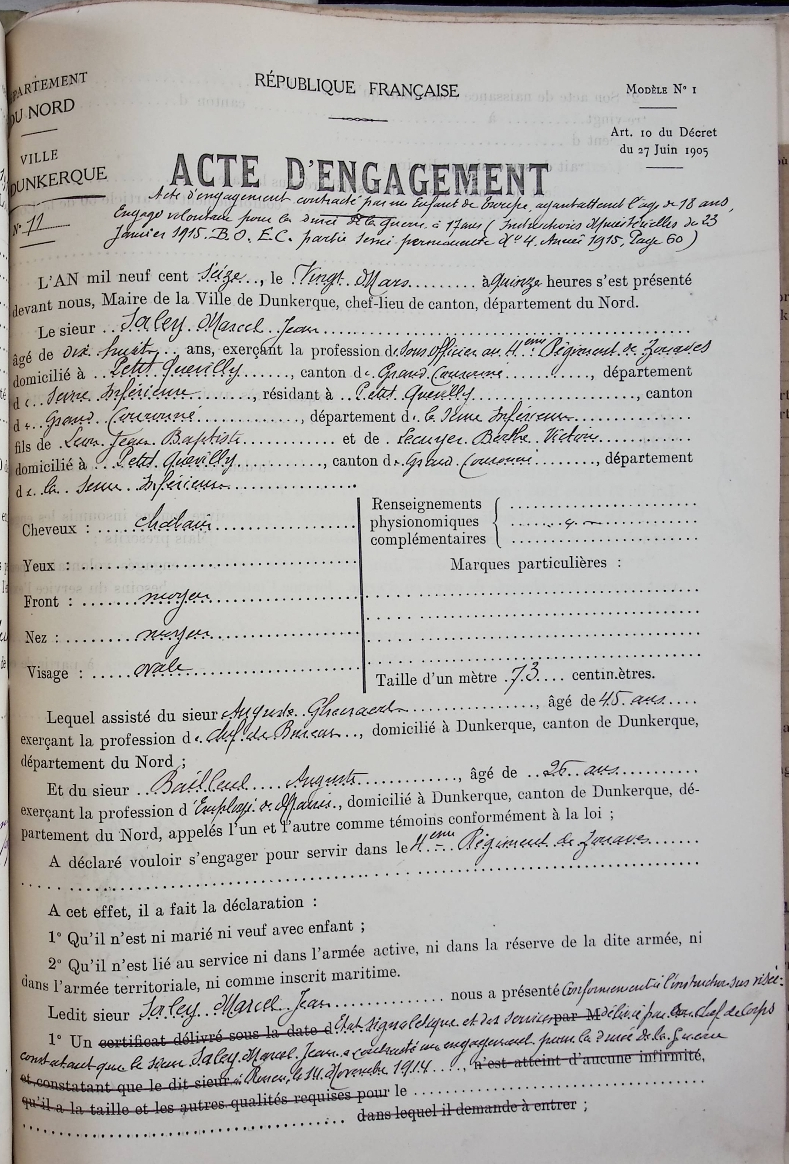 DÉPARTEMENT
DU NORD
VILLE
DUNKERQUE
N° 11
RÉPUBLIQUE FRANÇAISE
MODÈLE N° 1
Art. 10 du Décret
du 27 Juin 1905
ACTE D'ENGAGEMENT
Acte d'engagement contracté par un Enfant de Troupe, ayant atteint l'age de 18 ans,
Engagé volontaire pour la durée de la guerre à 17 ans (Instructions Ministérielles du 23
Janvier 1915. B.O. E.C. partie semi permanente N° 4. Année 1915, Page 60)
L'AN mil neuf cent Seize, le Vingt Mars à quinze heures s'est présenté
devant nous, Maire de la Ville de Dunkerque, chef-lieu de canton, département du Nord.
Le sieur Saley Marcel Jean
âgé de dix huit ans, exerçant la profession de Sous Officier au 4ème Régiment de Zouaves
domicilié à Petit Quevilly, canton de Grand Couronné, département
de Seine Inférieure, résidant à Petit Quevilly, canton
de Grand Couronné, département de la Seine Inférieure
fils de Jean Baptiste et de Lecuyer Berthe Victoire
domicilié à Petit Quevilly, canton de Grand Couronné, département
de la Seine Inférieure
Cheveux : chatain
Yeux :
Front : moyen
Nez : moyen
Visage : ovale
Renseignements
physionomiques
complémentaires
Marques particulières :
Taille d'un mètre 73 centimètres.
Lequel assisté du sieur Auguste, âgé de 45 ans
exerçant la profession de Chef de Bureau, domicilié à Dunkerque, canton de Dunkerque,
département du Nord ;
Et du sieur Bailleul Auguste, âgé de 26 ans
exerçant la profession d'Employé de Mairie, domicilié à Dunkerque, canton de Dunkerque, dé-
partement du Nord, appelés l'un et l'autre comme témoins conformément à la loi ;
A déclaré vouloir s'engager pour servir dans le 4ème Régiment de Zouaves
A cet effet, il a fait la déclaration :
1° Qu'il n'est ni marié ni veuf avec enfant ;
2° Qu'il n'est lié au service ni dans l'armée active, ni dans la réserve de la dite armée, ni
dans l'armée territoriale, ni comme inscrit maritime.
Ledit sieur Saley Marcel Jean nous a présenté Conformément à l'instruction sus visée :
1° Un certificat délivré sous la date d Etat signalétique et des services par M délivré par Chef de Corps
constatant que le sieur Saley Marcel Jean a contracté un engagement pour la durée de la Guerre
et constatant que le dit sieur à Rouen, le 14 Novembre 1914, n'est atteint d'aucune infirmité,
qu'il a la taille et les autres qualités requises pour le
dans lequel il demande à entrer ;